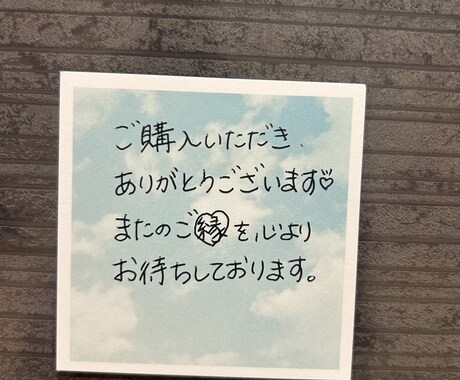 ご購入いただき、
ありがとうございます♡
またのご縁を心より
お待ちしております。